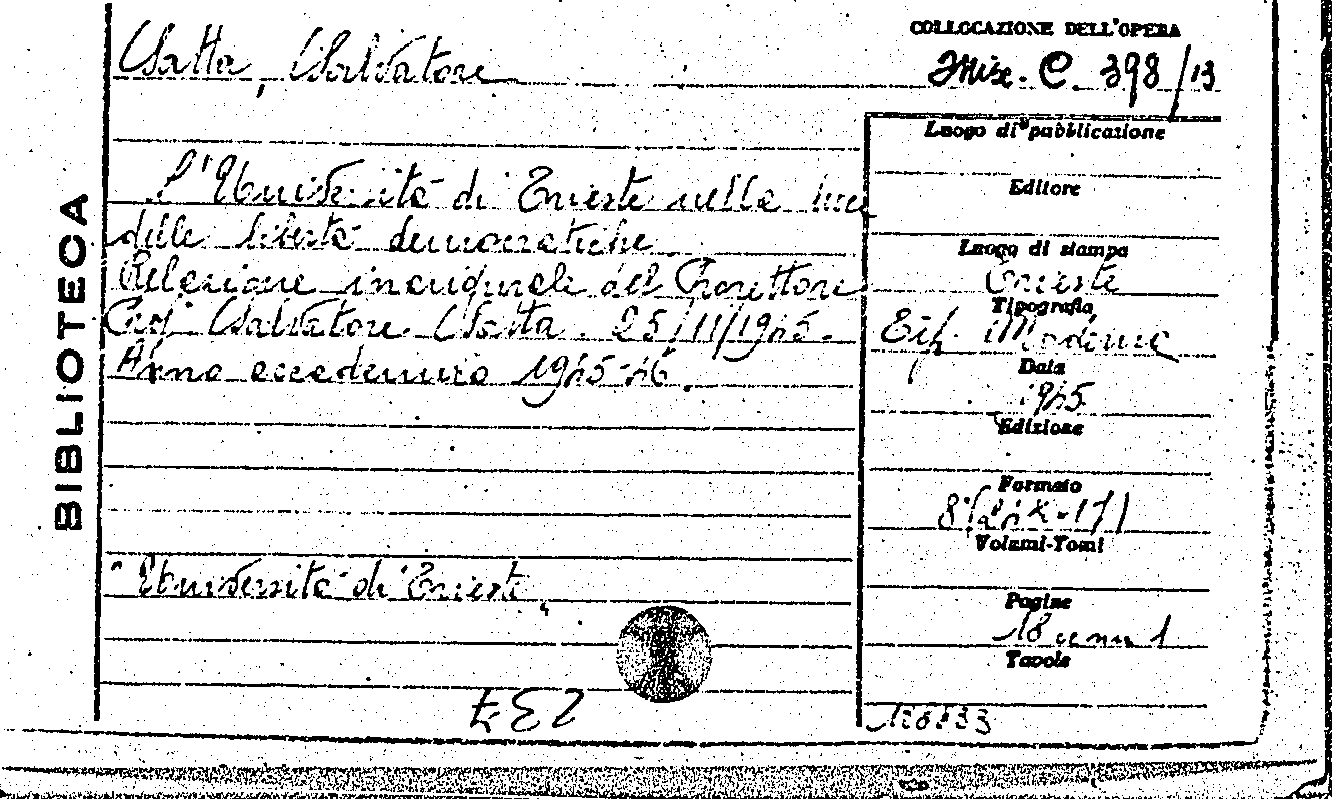 COLLOCAZIONE DELL'OPERA
Satta, Salvatore
Misc. C. 398/13
BIBLIOTECA
L'Università di Trieste nella luce
delle libertà democratiche.
Relazione inaugurale del Prorettore
Prof. Salvatore Satta. 25/11/1945.
Anno accademico 1945-46.
"Università di Trieste"
237
Luogo di pubblicazione
Editore
Luogo di stampa
Trieste
Tipografia
Tip. Moderna
Data
1945
Edizione
Formato
8°(24x17)
Volumi-Tomi
Pagine
18 c nn 1
Tavole